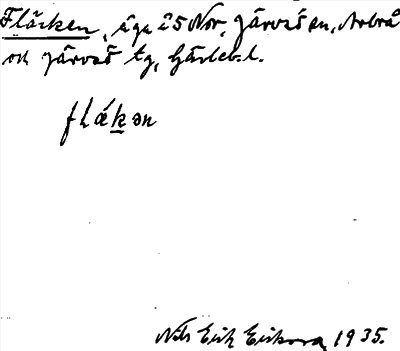 Fläcken, äga i S Nor, Järvsö sn, Arbrå
och Järvsö tg, Gävleb. l.
flákən
Nils Erik Eriksson 1935.